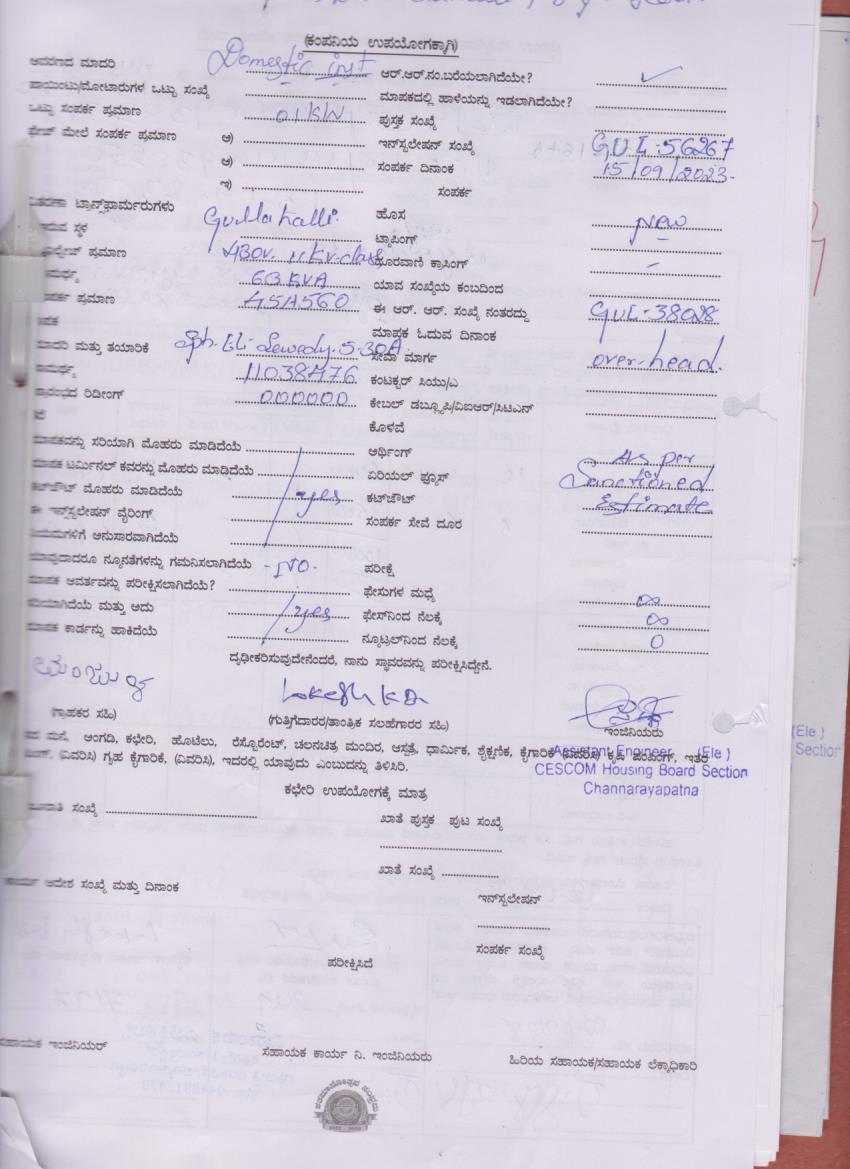 (ಕಂಪನಿಯ ಉಪಯೋಗಕ್ಕಾಗಿ)
ಆವರಣದ ಮಾದರಿ Domestic inst ಆರ್.ಆರ್.ನಂ.ಬರೆಯಲಾಗಿದೆಯೇ? ✓
ಪಾಯಿಂಟು/ಮೋಟಾರುಗಳ ಒಟ್ಟು ಸಂಖ್ಯೆ ಮಾಪಕದಲ್ಲಿ ಹಾಳೆಯನ್ನು ಇಡಲಾಗಿದೆಯೇ?
ಒಟ್ಟು ಸಂಪರ್ಕ ಪ್ರಮಾಣ 01KW ಪುಸ್ತಕ ಸಂಖ್ಯೆ
ಫೇಜ್ ಮೇಲೆ ಸಂಪರ್ಕ ಪ್ರಮಾಣ ಅ) ಇನ್‌ಸ್ಟಲೇಷನ್ ಸಂಖ್ಯೆ GUL:56267
ಆ) ಸಂಪರ್ಕ ದಿನಾಂಕ 15/09/2023-
ಇ) ಸಂಪರ್ಕ
ವಿತರಣಾ ಟ್ರಾನ್ಸ್‌ಫಾರ್ಮರುಗಳು ಹೊಸ New
ಸ್ಥಳ Gullahalli. ಟ್ಯಾಪಿಂಗ್ -
ಪ್ರಮಾಣ 430v. 11Kv-class ದೂರವಾಣಿ ಕ್ರಾಸಿಂಗ್ -
63KVA ಯಾವ ಸಂಖ್ಯೆಯ ಕಂಬದಿಂದ
ಪ್ರಮಾಣ 45A560 ಈ ಆರ್. ಆರ್. ಸಂಖ್ಯೆ ನಂತರದ್ದು GUL-38028
ಮಾಪಕ ಓದುವ ದಿನಾಂಕ
ಮಾದರಿ ಮತ್ತು ತಯಾರಿಕೆ 5-30A ಸೇವಾ ಮಾರ್ಗ over-head.
11038476 ಕಂಟಕ್ಟರ್ ಸಿಯು/ಎ
ಪ್ರಾರಂಭದ ರಿಡೀಂಗ್ 000000 ಕೇಬಲ್ ಡಬ್ಲ್ಯೂಪಿ/ವಿಐಆರ್/ಸಿಟಿಎನ್
ಕೊಳವೆ
ಮಾಪಕವನ್ನು ಸರಿಯಾಗಿ ಮೊಹರು ಮಾಡಿದೆಯೆ ಅರ್ಥಿಂಗ್ As per
ಮಾಪಕ ಟರ್ಮಿನಲ್ ಕವರನ್ನು ಮೊಹರು ಮಾಡಿದೆಯೆ ಏರಿಯಲ್ ಫ್ಯೂಸ್ Sanctioned
ಕಟ್‌ಔಟ್ ಮೊಹರು ಮಾಡಿದೆಯೆ yes ಕಟ್‌ಔಟ್ Estimate
ಈ ಇನ್‌ಸ್ಟಲೇಷನ್ ವೈರಿಂಗ್ ಸಂಪರ್ಕ ಸೇವೆ ದೂರ
ನಿಯಮಗಳಿಗೆ ಅನುಸಾರವಾಗಿದೆಯೆ
ಯಾವುದಾದರೂ ನ್ಯೂನತೆಗಳನ್ನು ಗಮನಿಸಲಾಗಿದೆಯೆ -No. ಪರೀಕ್ಷೆ
ಮಾಪಕ ಆವರ್ತವನ್ನು ಪರೀಕ್ಷಿಸಲಾಗಿದೆಯೆ? ಫೇಸುಗಳ ಮಧ್ಯೆ ∞
ಸರಿಯಾಗಿದೆಯೆ ಮತ್ತು ಅದು yes ಫೇಸ್‌ನಿಂದ ನೆಲಕ್ಕೆ ∞
ಮಾಪಕ ಕಾರ್ಡನ್ನು ಹಾಕಿದೆಯೆ ನ್ಯೂಟ್ರಲ್‌ನಿಂದ ನೆಲಕ್ಕೆ 0
ದೃಢೀಕರಿಸುವುದೇನೆಂದರೆ, ನಾನು ಸ್ಥಾವರವನ್ನು ಪರೀಕ್ಷಿಸಿದ್ದೇನೆ.
Lokesh K.D
(ಗ್ರಾಹಕರ ಸಹಿ) (ಗುತ್ತಿಗೆದಾರರ/ತಾಂತ್ರಿಕ ಸಲಹೆಗಾರರ ಸಹಿ) ಇಂಜಿನಿಯರು
ಮನೆ, ಅಂಗಡಿ, ಕಛೇರಿ, ಹೊಟೆಲು, ರೆಸ್ಟೋರೆಂಟ್, ಚಲನಚಿತ್ರ ಮಂದಿರ, ಆಸ್ಪತ್ರೆ, ಧಾರ್ಮಿಕ, ಶೈಕ್ಷಣಿಕ, ಕೈಗಾರಿಕೆ (ವಿವರಿಸಿ) ಕೃಷಿ ಪಂಪಿಂಗ್, ಇತರೆ
(ವಿವರಿಸಿ) ಗೃಹ ಕೈಗಾರಿಕೆ, (ವಿವರಿಸಿ), ಇದರಲ್ಲಿ ಯಾವುದು ಎಂಬುದನ್ನು ತಿಳಿಸಿರಿ.
Assistant Engineer (Ele)
CESCOM Housing Board Section
Channarayapatna
(Ele)
Section
ಕಛೇರಿ ಉಪಯೋಗಕ್ಕೆ ಮಾತ್ರ
ಸಂಖ್ಯೆ ಖಾತೆ ಪುಸ್ತಕ ಪುಟ ಸಂಖ್ಯೆ
ಖಾತೆ ಸಂಖ್ಯೆ
ಕಾರ್ಯ ಆದೇಶ ಸಂಖ್ಯೆ ಮತ್ತು ದಿನಾಂಕ ಇನ್‌ಸ್ಟಲೇಷನ್
ಸಂಪರ್ಕ ಸಂಖ್ಯೆ
ಪರೀಕ್ಷಿಸಿದೆ
ಸಹಾಯಕ ಇಂಜಿನಿಯರ್ ಸಹಾಯಕ ಕಾರ್ಯ ನಿ. ಇಂಜಿನಿಯರು ಹಿರಿಯ ಸಹಾಯಕ/ಸಹಾಯಕ ಲೆಕ್ಕಾಧಿಕಾರಿ